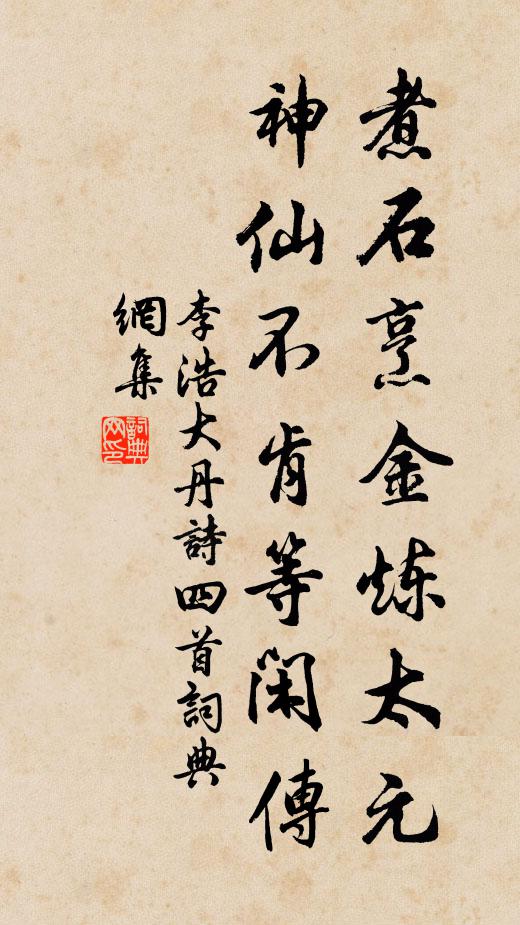 煮石烹金炼太元
神仙不肯等閑傳
李浩大丹詩四首詞典
網集
詞典網印